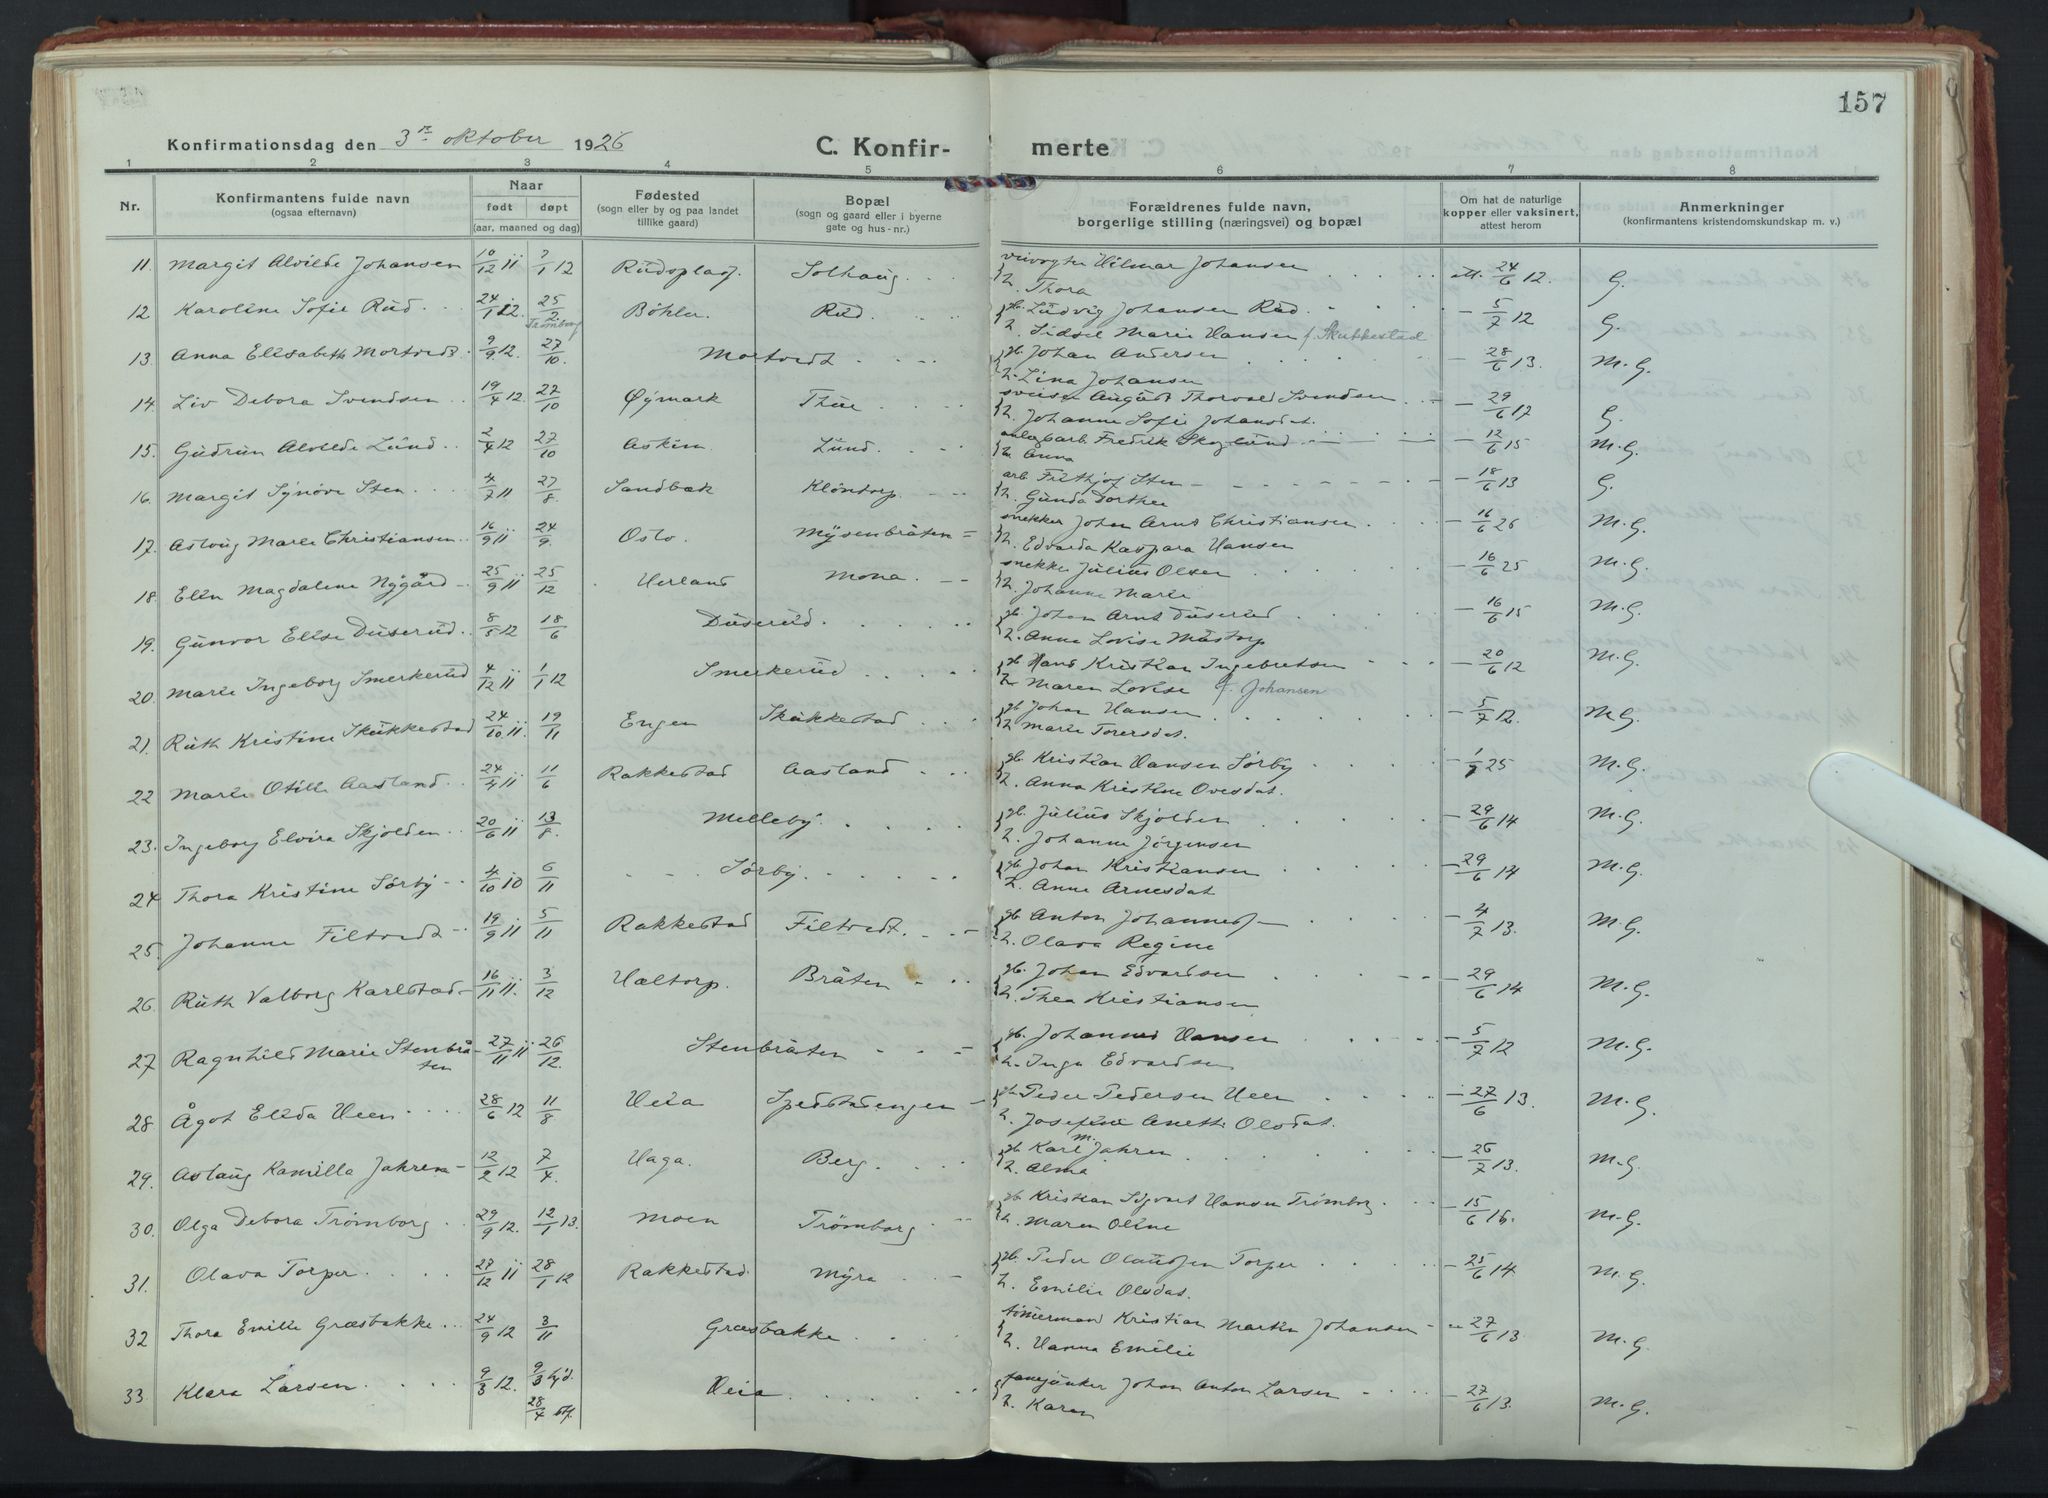 157
Konfirmationsdag den 3 oktober 1926 C. Konfirmerte
1 2 3 4 5 6 7 8
Nr. Konfirmantens fulde navn (ogsaa efternavn) Naar født døpt (aar, maaned og dag) Fødested (sogn eller by og paa landet tillike gaard) Bopæl (sogn og gaard eller i byerne gate og hus-nr.) Forældrenes fulde navn, borgerlige stilling (næringsvei) og bopæl Om hat de naturlige kopper eller vaksinert, attest herom Anmerkninger (konfirmantens kristendomskundskap m. v.)
11. Margit Alvilde Johansen 10/12 11 7/1 12 Rudsplass. Solhaug veivogter Hilmar Johansen att. 24/6 12. G.
h. Thora
12. Karoline Sofie Rud 24/1 12. 25/2. Trømborg Böhler. Rud gb. Ludvig Johansen Rud - 5/7 12 G.
h. Sidsel Marie Hansen f. Skukkestad
13. Anna Elisabeth Mortvedt 9/9 12. 27/10. Mortvedt gb. Johan Andersen - 28/6 13. M.G.
h. Lina Johansen
14. Liv Debora Svendsen 19/4 12. 27/10 Øymark Thue sveiser August Thorvald Svendsen - 29/6 17 G.
h. Johanne Sofie Johansdat.
15. Gudrun Alvilde Lund 2/4 12 27/10 Askim. Lund anlegsarb. Fredrik Skoglund - 12/6 15 M.G.
h. Anna
16. Margit Synöve Sten 4/7 11 27/8. Sandbæk Klöntorp arb. Frithjof Sten - 18/6 13 G.
h. Gunda Dorthea
17. Aslaug Marie Christiansen 16/9 11 24/9. Oslo. Mysenbråten snekker Johan Arnt Christiansen - 16/6 26 M.G.
h. Edvarda Kaspara Hansen
18. Elin Magdalene Nygård 25/9 11 25/12 Herland Mona snekker Julius Olsen - 16/6 25 M.G.
h. Johanne Marie
19. Gunvor Elise Duserud 8/5 12 18/6 Duserud gb. Johan Arnt Duserud - 16/6 15 M.G.
h. Anna Lovise Måstorp
20. Marie Ingeborg Smerkerud 4/12 11 1/1 12 Smerkerud gb Hans Kristian Ingebretsen - 20/6 12 M.G.
h Maren Lovise f. Johansen
21. Ruth Kristine Skukkestad 24/10 11. 19/11 Engen Skukkestad gb Johan Hansen - 5/7 12 M.G.
h Marie Torersdat.
22 Marie Otilie Aasland 24/4 11 11/6 Rakkestad Aasland gb. Kristian Hansen Sørby - 1/9 25 M.G.
h. Anna Kristine Ovesdat.
23. Ingeborg Elvira Skjolden 20/6 11 13/8. Melleby gb. Julius Skjolden - 29/6 14 M.G.
h. Johanne Jörgensen
24 Thora Kristine Sörby 4/10 10 6/11 Sörby gb. Johan Kristiansen - 29/6 14 M.G.
h. Anne Arnesdat
25. Johanne Filtvedt 19/9 11 5/11 Rakkestad Filtvedt gb. Anton Johannessen - 4/7 13. M.G.
h. Olava Regine
26 Ruth Valborg Karlstad 16/11 11. 3/12 Haltorp. Bråten gb. Johan Edvardsen - 29/6 14 M.G.
h. Thea Kristiansen
27 Ragnhild Marie Stenbråten 27/11 11 26/12. Stenbråten gb. Johannes Hansen - 5/7 12 M.G.
h. Inga Edvardsen
28 Ågot Elida Heen 28/6 12 11/8 Heia Spedstadengen gb Peder Pedersen Heen - 27/6 13. M.G.
h. Josefine Anette Olsdat.
29. Aslaug Kamilla Jahren 12/2 12 7/4. Haga. Berg gb Karl M. Jahren - 26/7 13. M.G.
h. Alma
30. Olga Debora Trömborg 29/9 12. 12/1 13. Moen Trömborg gb Kristian Sigvart Hansen Trömborg - 15/6 16. M.G.
h. Maren Oline
31. Olava Torper 27/12 11 28/1 12 Rakkestad. Myra gb. Peder Olaussen Torper - 25/6 14 M.G.
h. Emilie Olsdat.
32 Thora Emilie Græsbakke 24/9 12 3/11 Græsbakke tömermand Kristian Martin Johansen - 27/6 13 M.G.
h. Hanna Emilie
33. Klara Larsen 9/3 12. 9/3 hjd. 28/4 stf. Heia fanejunker Johan Anton Larsen - 27/6 13. M.G.
h. Karen